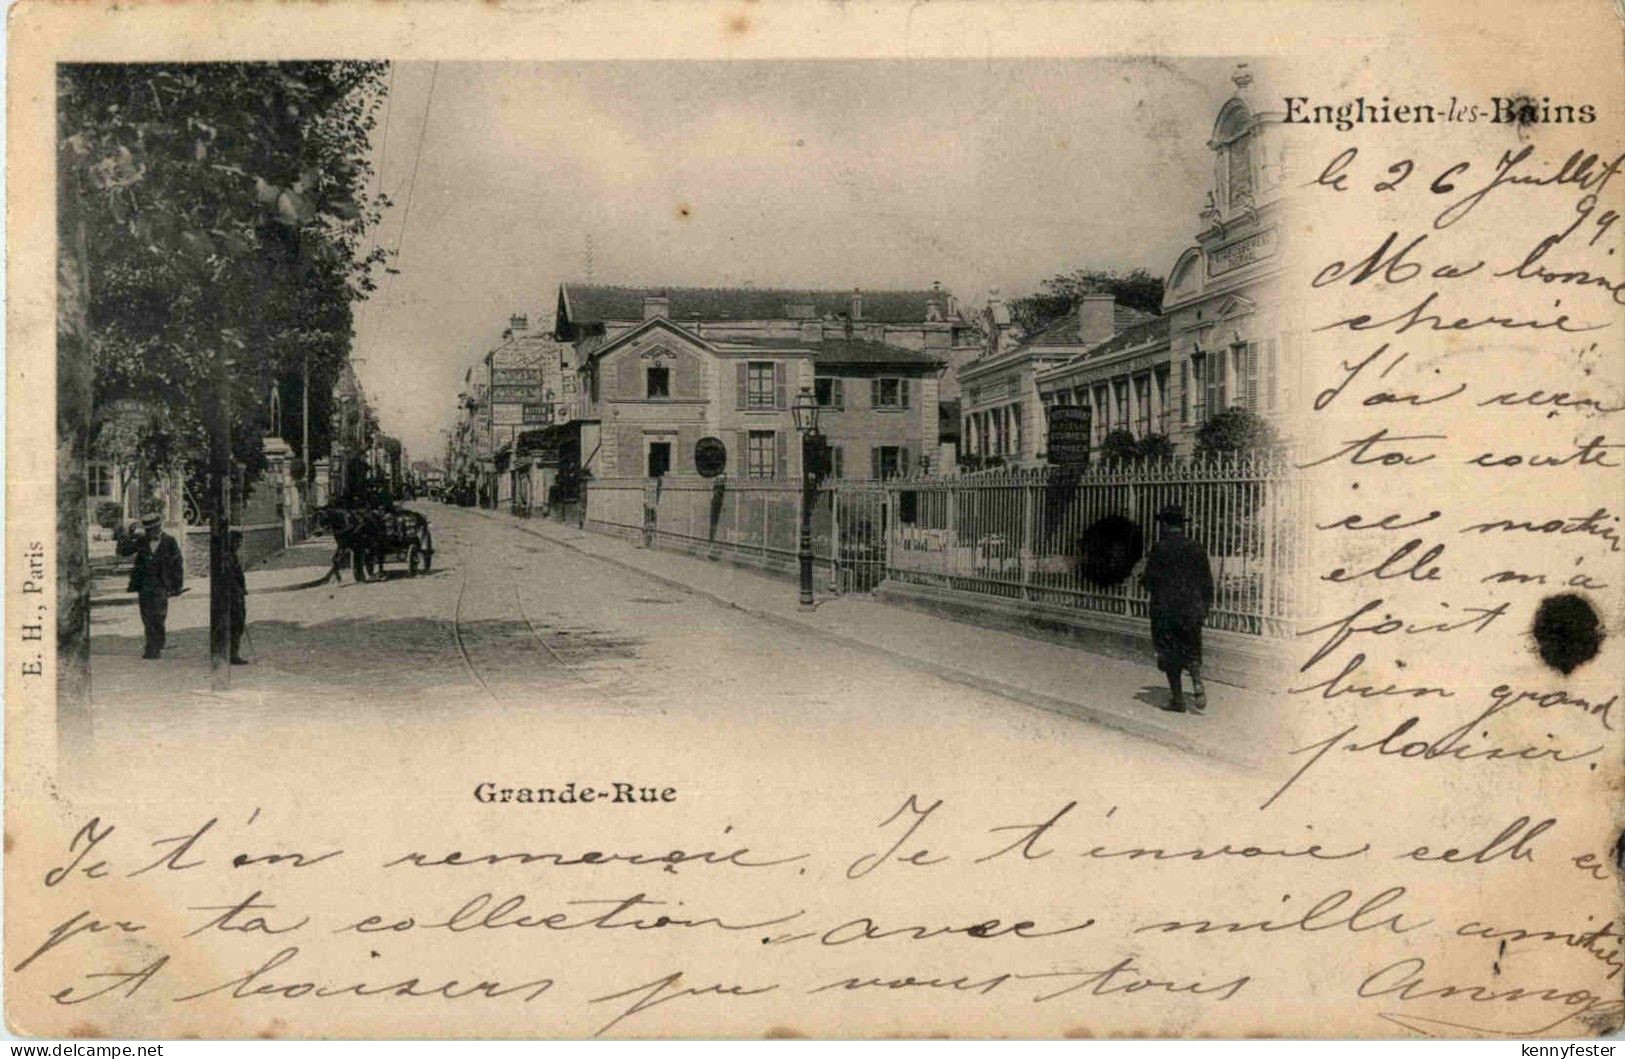 Enghien-les-Bains
le 26 Juillet
99
Ma bonne
cherie
J'ai reçu
ta carte
ce matin
elle m'a
fait
bien grand
plaisir.
E. H., Paris
ETABLISSEMENT
RESTAURANT
Grande-Rue
Je t'en remercie. Je t'envoie celle ci
pr ta collection. avec mille amitiés
et baisers pr vous tous Anna
delcampe.net
kennyfester